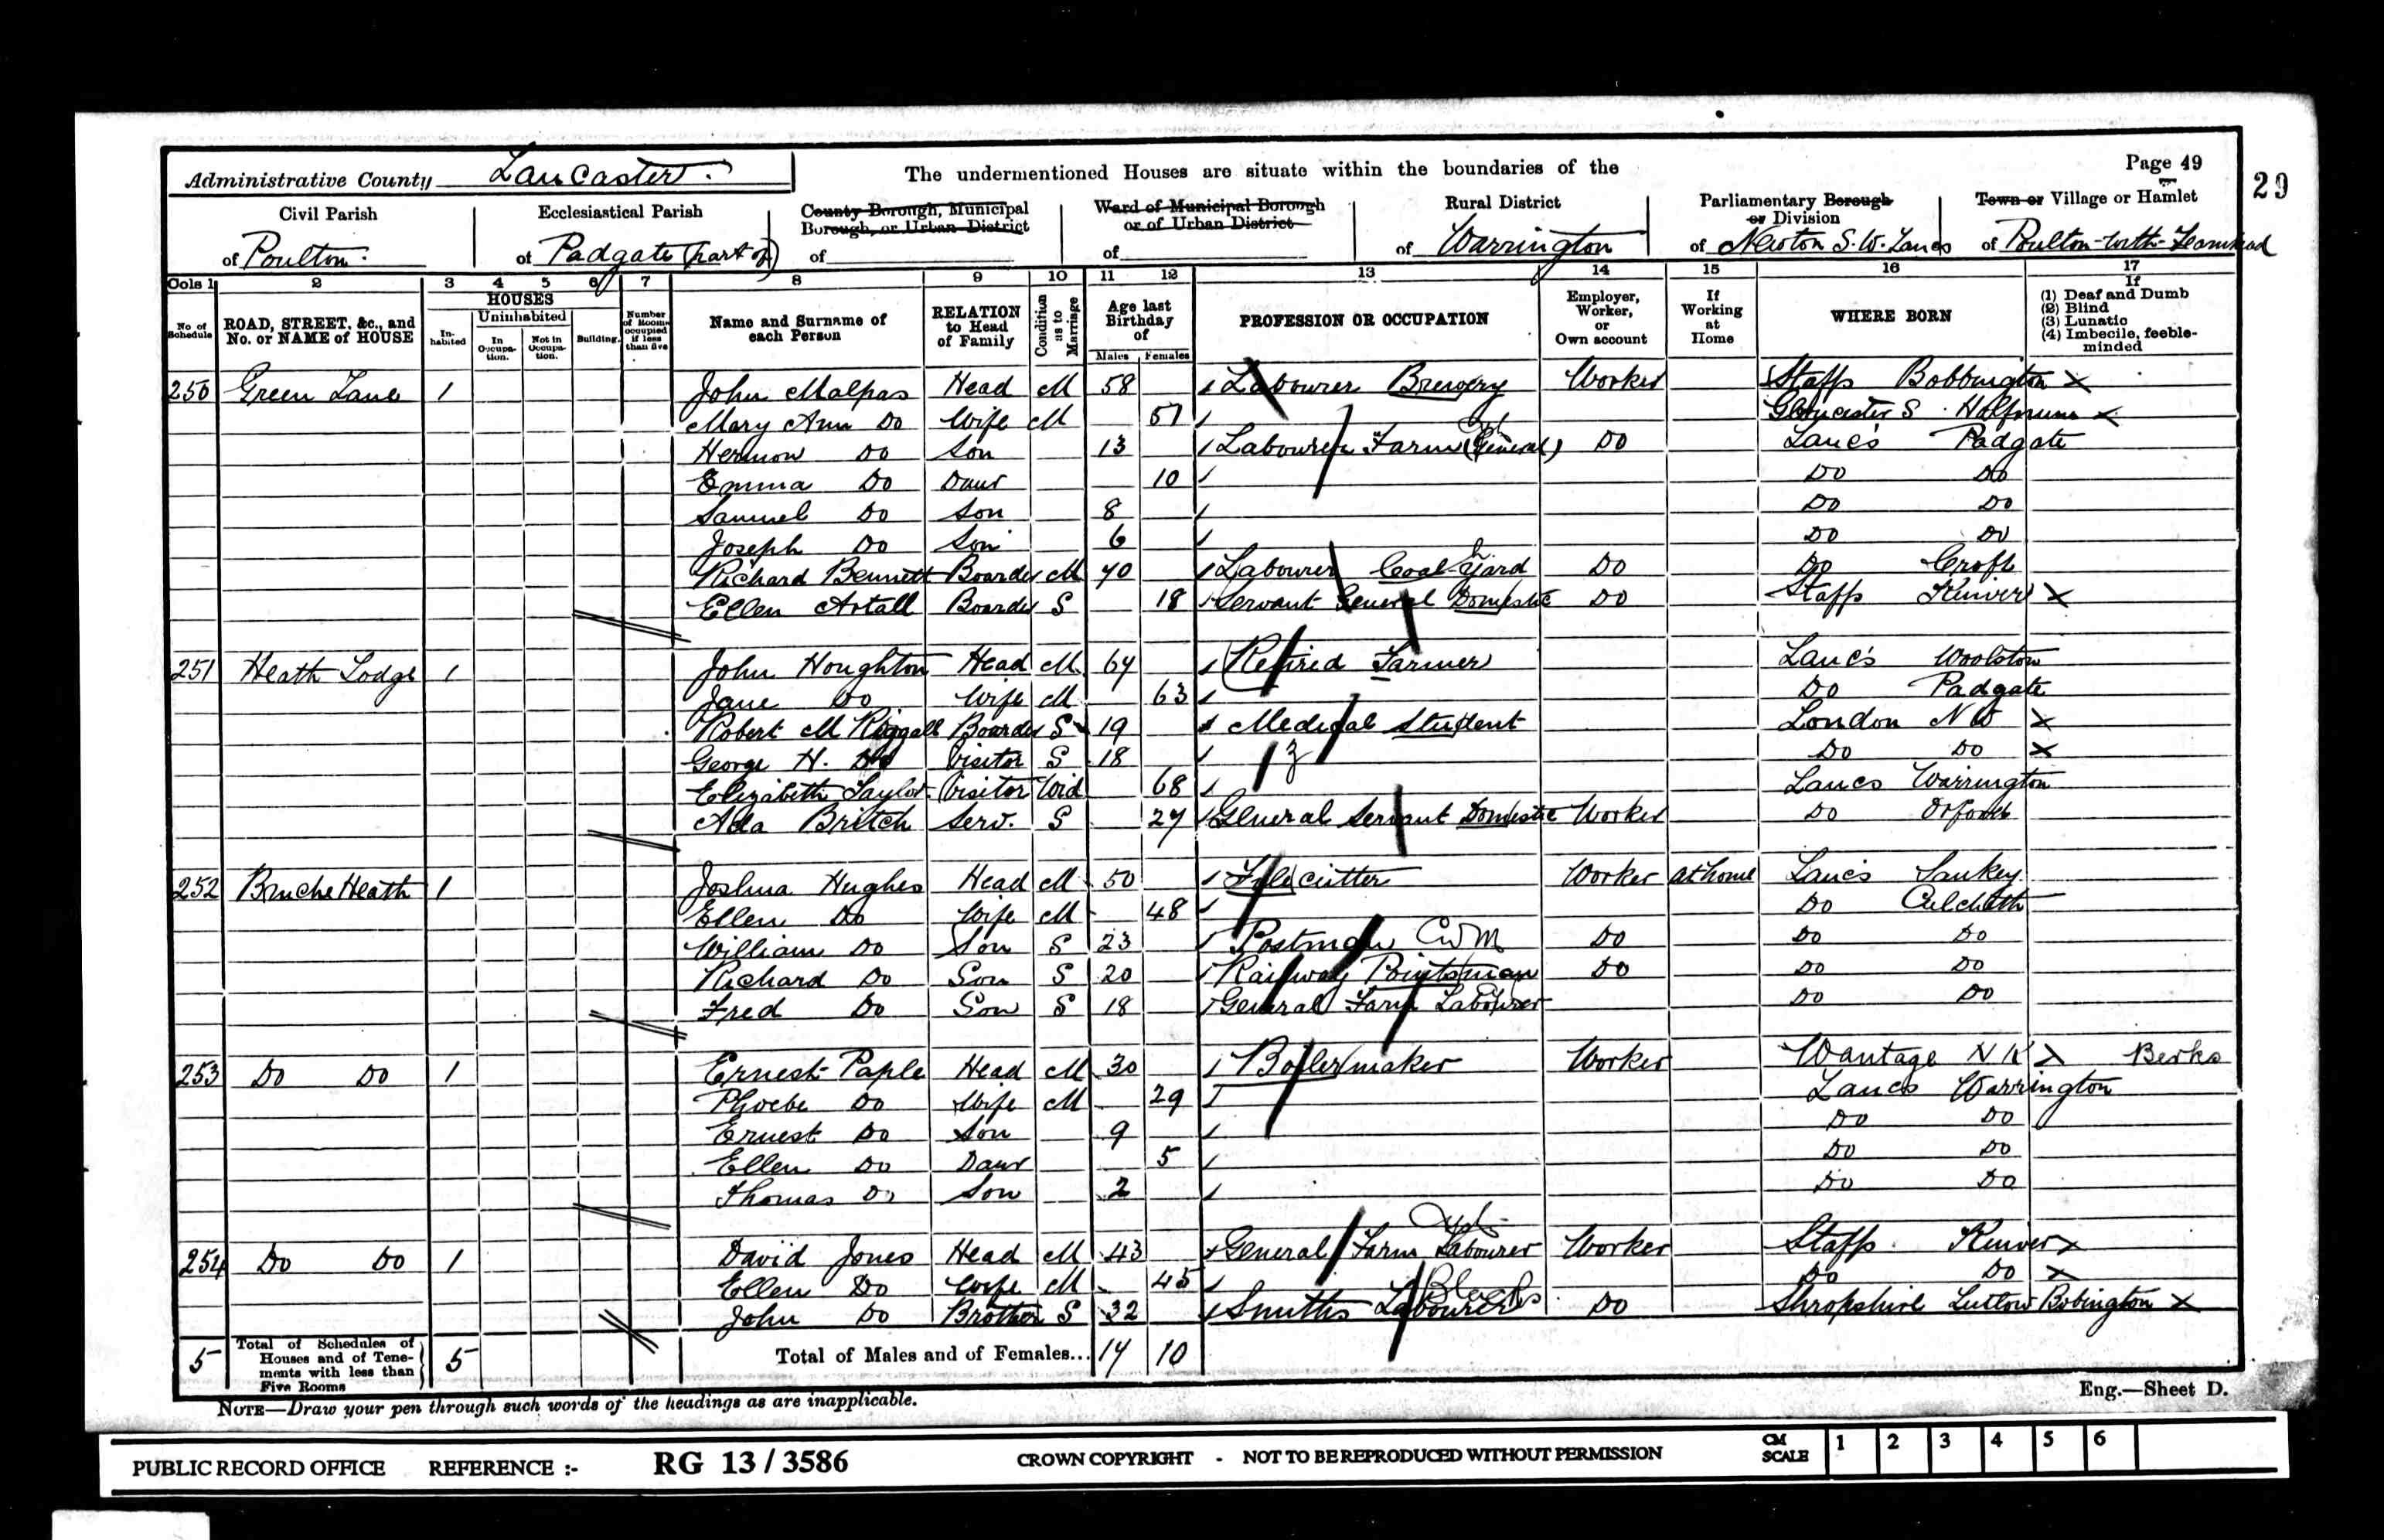 Administrative County Lancaster. The undermentioned Houses are situate within the boundaries of the Page 49
29
Civil Parish of Poulton. Ecclesiastical Parish of Padgate (part of) County Borough, Municipal Borough, or Urban District of Ward of Municipal Borough or of Urban District of Rural District of Warrington Parliamentary Borough or Division of Newton S.W. Lancs Town or Village or Hamlet of Poulton-with-Fearnhead
Cols 1 2 3 4 5 6 7 8 9 10 11 12 13 14 15 16 17
No of Schedule ROAD, STREET, &c., and No. or NAME of HOUSE HOUSES Inhabited Uninhabited In Occupation. Not in Occupation. Building. Number of Rooms occupied if less than five Name and Surname of each Person RELATION to Head of Family Condition as to Marriage Age last Birthday of Males Females PROFESSION OR OCCUPATION Employer, Worker, or Own account If Working at Home WHERE BORN If (1) Deaf and Dumb (2) Blind (3) Lunatic (4) Imbecile, feeble-minded
250 Green Lane 1 John Malpas Head M 58 Labourer Brewery Worker Staffs Bobbington X
Mary Ann Do Wife M 57 Gloucester S. X
Hermon Do Son 13 Labourer Farm (General) Do Lancs Padgate
Emma Do Daur 10 Do Do
Samuel Do Son 8 Do Do
Joseph Do Son 6 Do Do
Richard Bennett Boarder M 40 Labourer Coal Yard Do Do Croft
Ellen Boarder S 18 Servant General Domestic Do Staffs Kinver X
251 Heath Lodge 1 John Houghton Head M 64 Retired Farmer Lancs Woolston
Jane Do Wife M 63 Do Padgate
Robert M Riggall Boarder S 19 Medical Student London NW X
George H. Do Visitor S 18 Do Do X
Elizabeth Taylor Visitor Wid 68 Lancs Warrington
Ada Britch Serv. S 27 General Servant Domestic Worker Do Orford
252 Bruche Heath 1 Joshua Hughes Head M 50 File cutter Worker at home Lancs Sankey
Ellen Do Wife M 48 Do Culcheth
William Do Son S 23 Postman Do Do Do
Richard Do Son S 20 Railway Pointsman Do Do Do
Fred Do Son S 18 General Farm Labourer Do Do
253 Do Do 1 Ernest Paple Head M 30 Boilermaker Worker Wantage N K X Berks
Phoebe Do Wife M 29 Lancs Warrington
Ernest Do Son 9 Do Do
Ellen Do Daur 5 Do Do
Thomas Do Son 2 Do Do
254 Do Do 1 David Jones Head M 43 General Farm Labourer Worker Staffs. Kinver X
Ellen Do Wife M 45 Do Do X
John Do Brother S 32 Smiths Labourer Do Shropshire Lutlow Bobington X
5 Total of Schedules of Houses and of Tenements with less than Five Rooms 5 Total of Males and of Females... 14 10
NOTE—Draw your pen through such words of the headings as are inapplicable. Eng.—Sheet D.
PUBLIC RECORD OFFICE REFERENCE :- RG 13 / 3586 CROWN COPYRIGHT - NOT TO BE REPRODUCED WITHOUT PERMISSION CM SCALE 1 2 3 4 5 6